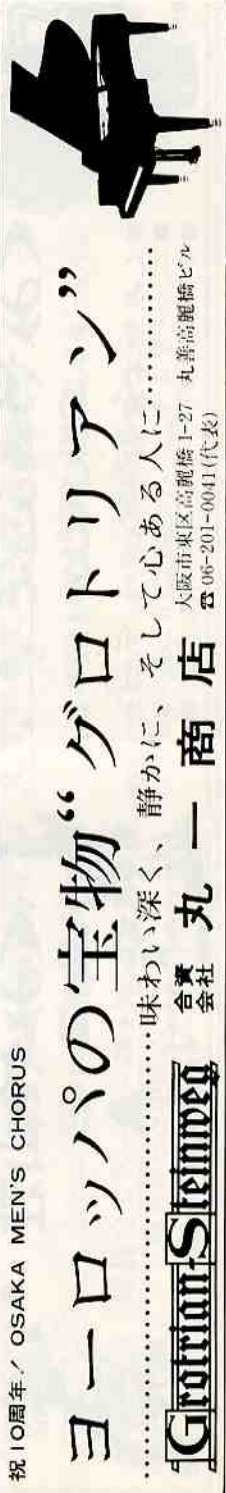 祝10周年! OSAKA MEN'S CHORUS
ヨーロッパの宝物“グロトリアン”
……………味わい深く、静かに、そして心ある人に……………
Grotrian-Steinweg
合資会社 丸一商店
大阪市東区高麗橋1-27 丸善高麗橋ビル
☎06-201-0041(代表)